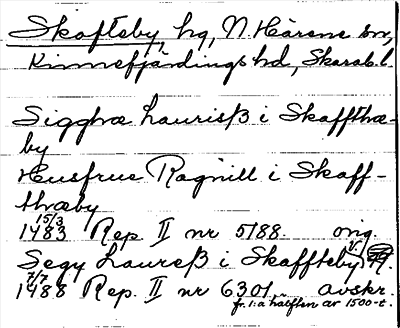 Skofteby, hg, N. Härene sn,
Kinnefjärdings hd, Skarab. l.
Sigghæ Laurisß i Skaffthæ-
by
Husfrue Ragnill i Skaff-
thæby
15/3
1483 Rep. II nr 5188. orig.
Segy Laureß i Skaffteby
7/7
1488 Rep. II nr 6301. avskr.
fr. 1:a hälften av 1500-t.